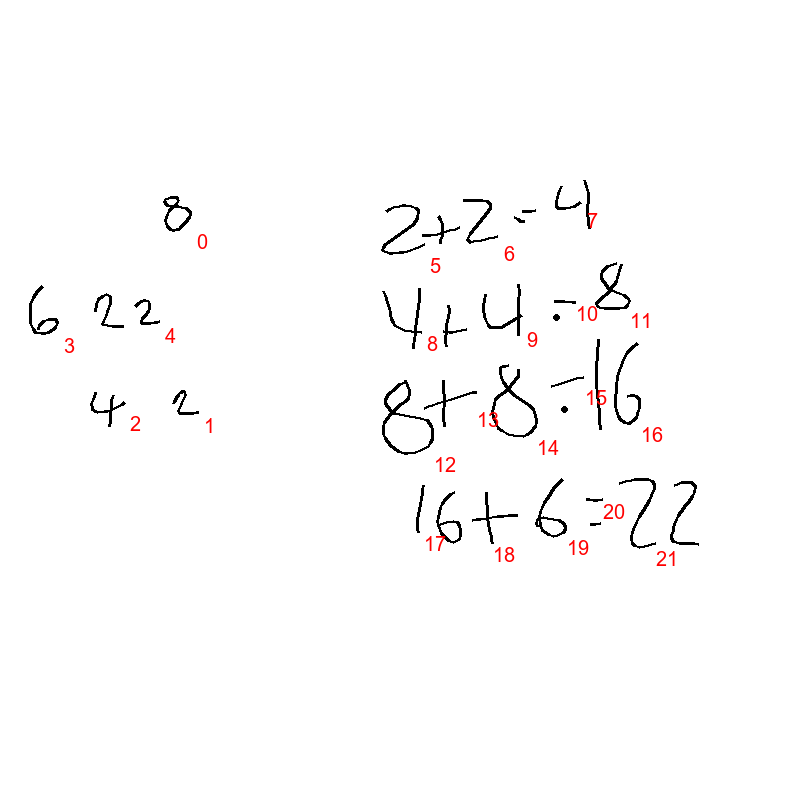 8
0
6 22
3 4
4 2
2 1
2+2=4
5 6 7
4+4=8
8 9 10 11
8+8=16
12 13 14 15 16
16+6=22
17 18 19 20 21